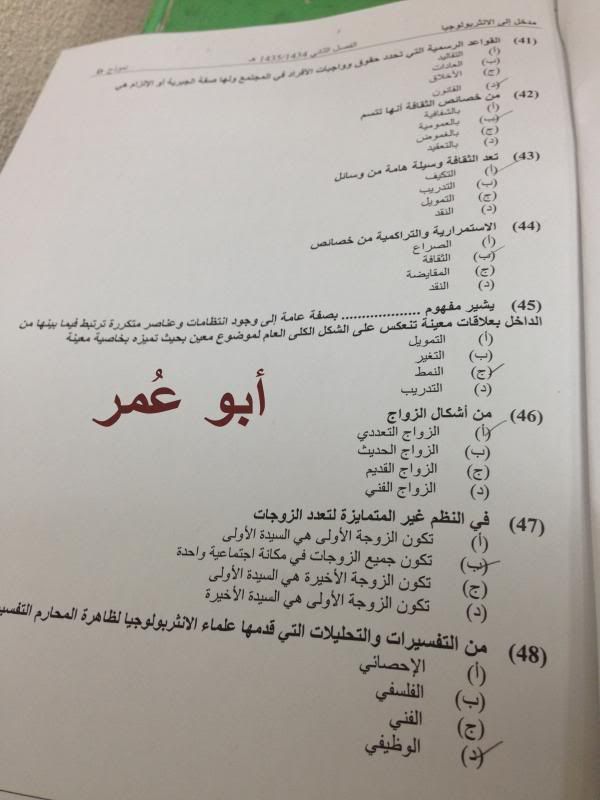 مدخل إلى الانثربولوجيا
الفصل الثاني 1435/1434 هـ
نموذج D
(41) القواعد الرسمية التي تحدد حقوق وواجبات الأفراد في المجتمع ولها صفة الجبرية أو الإلزام هي
(أ) التقاليد
(ب) العادات
(ج) الأخلاق
(د) القانون
(42) من خصائص الثقافة أنها تتسم
(أ) بالشفافية
(ب) بالعمومية
(ج) بالغموض
(د) بالتعقيد
(43) تعد الثقافة وسيلة هامة من وسائل
(أ) التكيف
(ب) التدريب
(ج) التمويل
(د) النقد
(44) الاستمرارية والتراكمية من خصائص
(أ) الصراع
(ب) الثقافة
(ج) المقايضة
(د) النقد
(45) يشير مفهوم .................. بصفة عامة إلى وجود انتظامات وعناصر متكررة ترتبط فيما بينها من
الداخل بعلاقات معينة تنعكس على الشكل الكلى العام لموضوع معين بحيث تميزه بخاصية معينة
(أ) التمويل
(ب) التغير
(ج) النمط
(د) التدريب
أبو عُمر
(46) من أشكال الزواج
(أ) الزواج التعددي
(ب) الزواج الحديث
(ج) الزواج القديم
(د) الزواج الفني
(47) في النظم غير المتمايزة لتعدد الزوجات
(أ) تكون الزوجة الأولى هي السيدة الأولى
(ب) تكون جميع الزوجات في مكانة اجتماعية واحدة
(ج) تكون الزوجة الأخيرة هي السيدة الأولى
(د) تكون الزوجة الأولى هي السيدة الأخيرة
(48) من التفسيرات والتحليلات التي قدمها علماء الانثربولوجيا لظاهرة المحارم
(أ) الإحصائي
(ب) الفلسفي
(ج) الفني
(د) الوظيفي